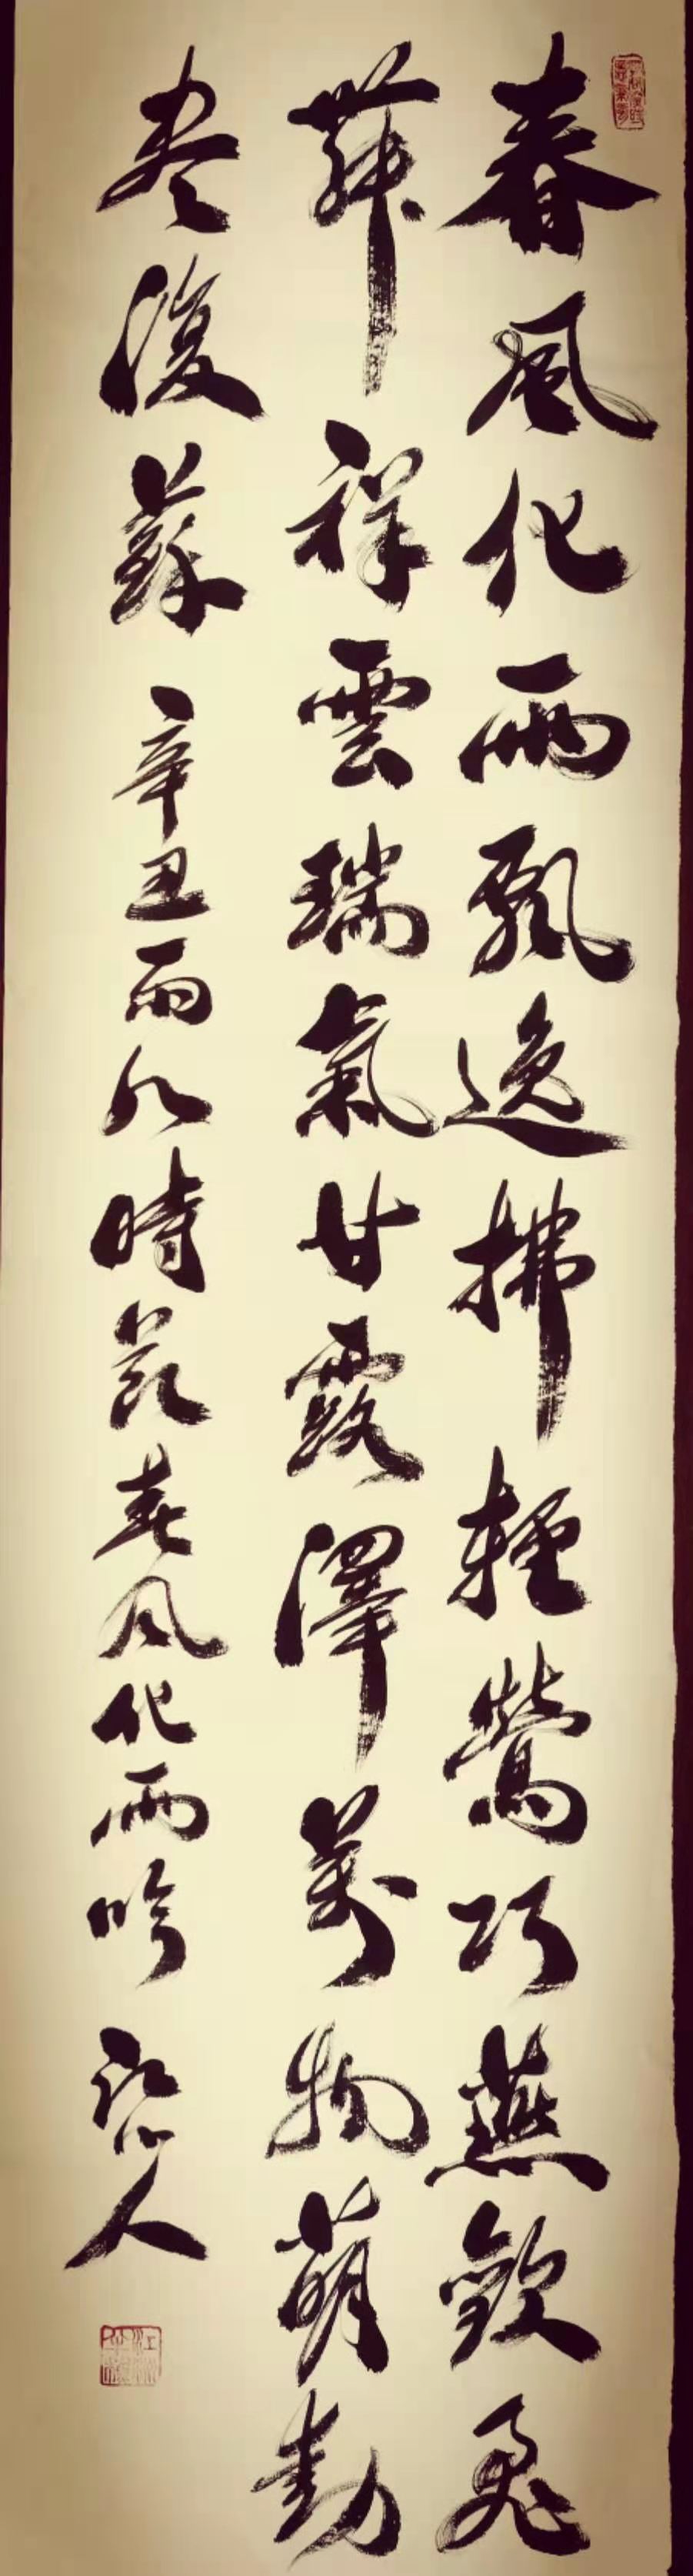 春風化雨飄逸拂輕鶯巧燕歡飛
舞祥雲瑞氣甘露澤萬物萌動
盡復蘇 辛丑雨水時節春風化雨吟 人